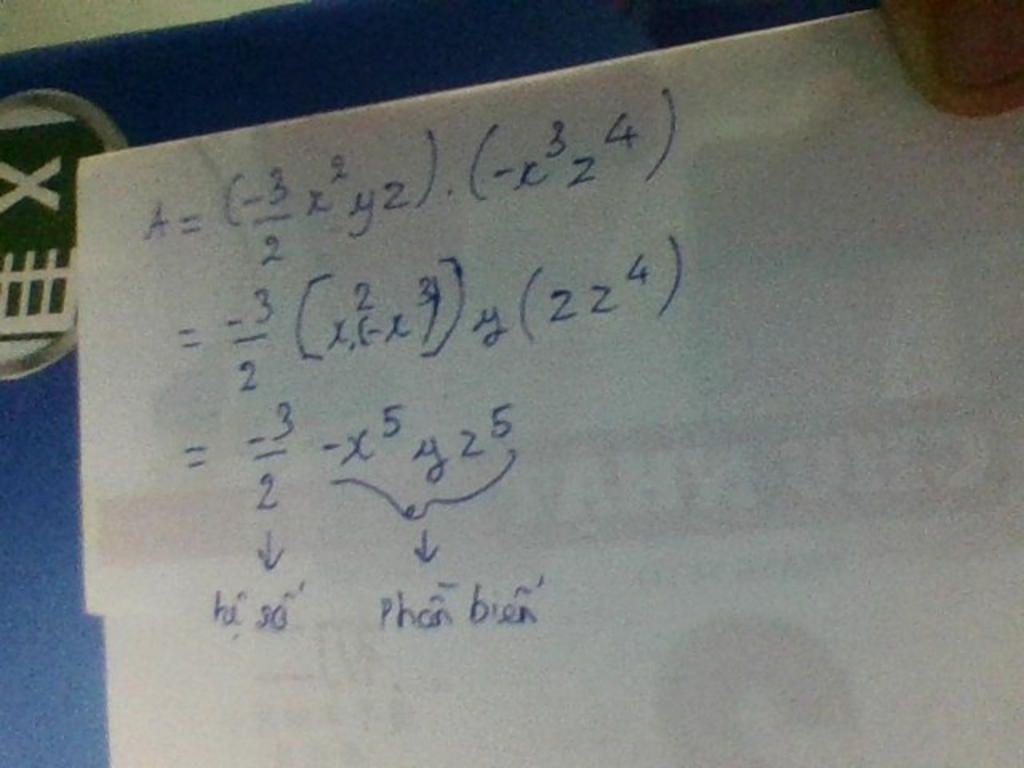 A = (-3/2 x²yz) . (-x³z⁴)
= -3/2 [x².(-x³)] y (zz⁴)
= -3/2 -x⁵yz⁵
↓ ↓
hệ số phần biến